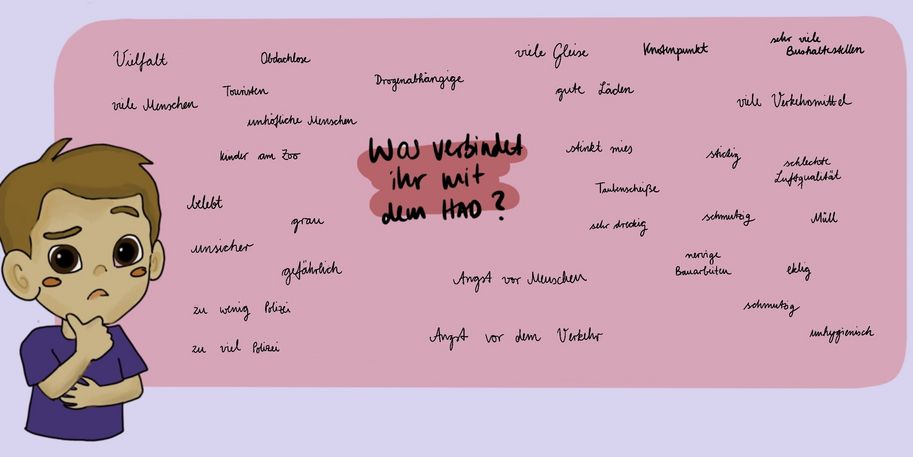 Vielfalt
Obdachlose
viele Gleise
Knotenpunkt
sehr viele
Bushaltestellen
viele Menschen
Touristen
Drogenabhängige
gute Läden
viele Verkehrsmittel
unhöfliche Menschen
Kinder am Zoo
Was verbindet
ihr mit
dem HAO?
stinkt mies
stickig
schlechte
Luftqualität
Taubenscheiße
belebt
grau
sehr dreckig
schmutzig
Müll
unsicher
gefährlich
Angst vor Menschen
nervige
Bauarbeiten
eklig
zu wenig Polizei
schmutzig
zu viel Polizei
Angst vor dem Verkehr
unhygienisch